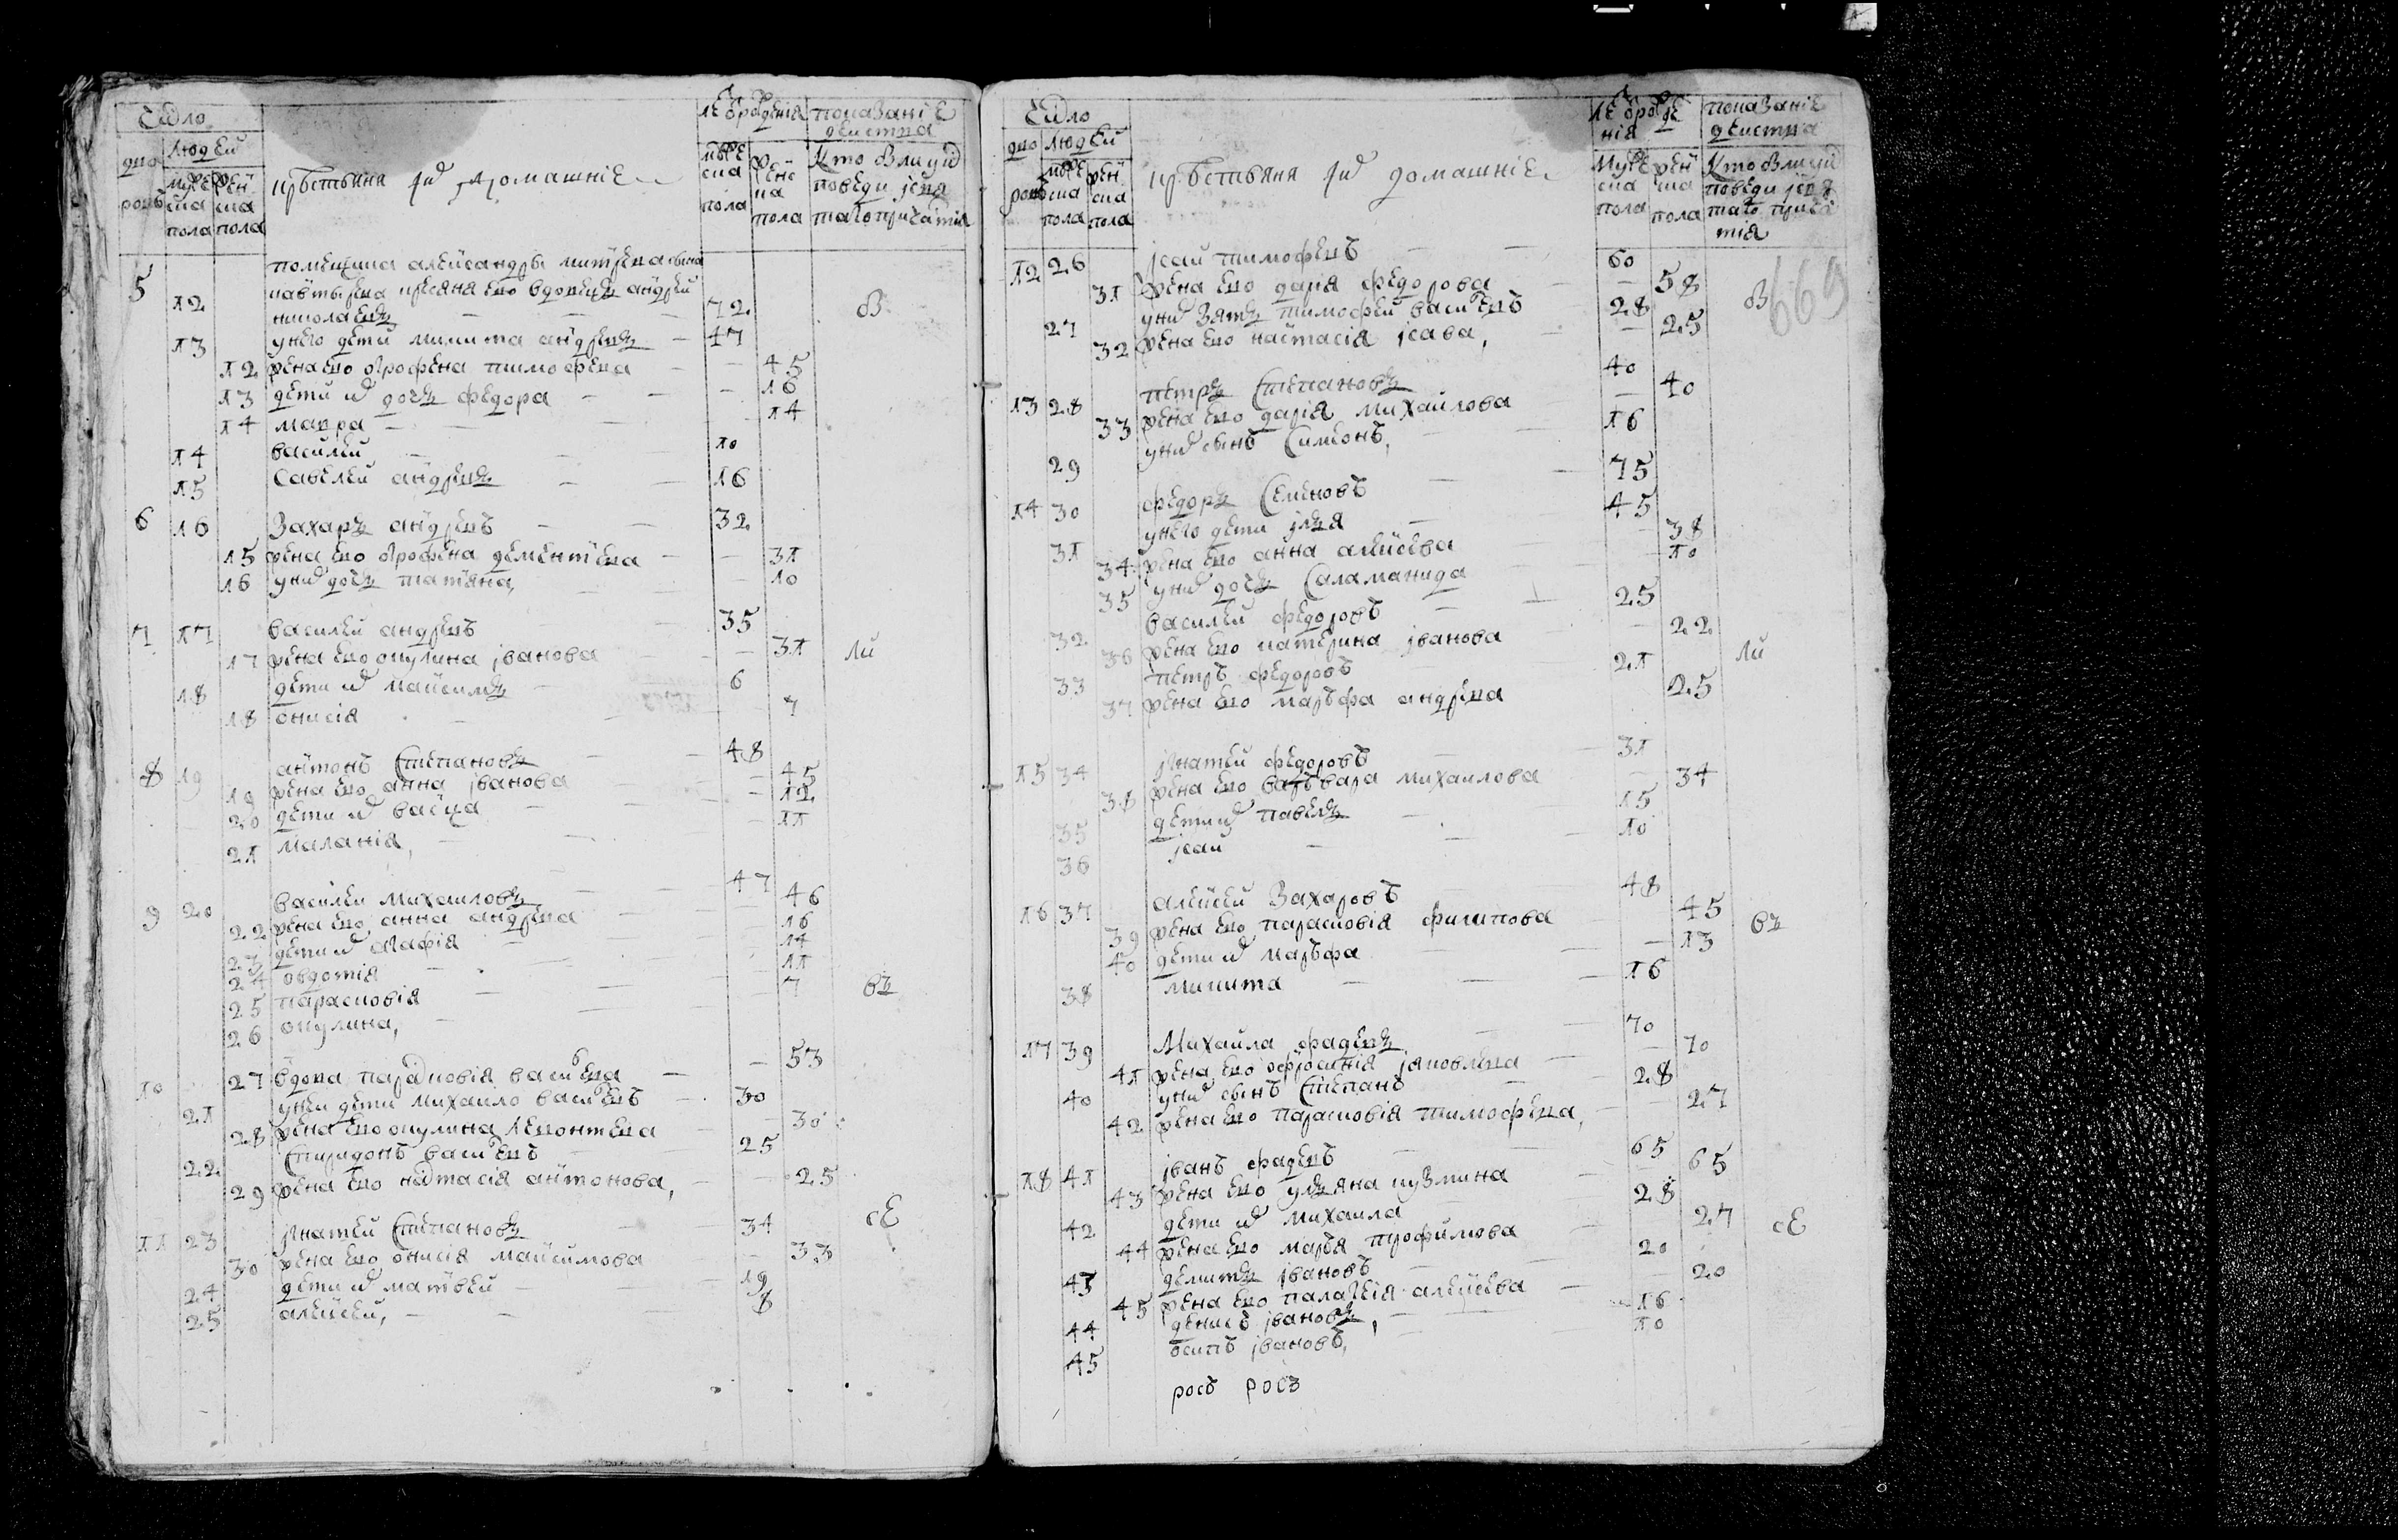 Число
дво
ровъ
людеи
муже
ска
пола
жен
ска
пола
крестьяня ихъ домашние
лѣ от рожденія
муже
ска
пола
женс
ка
пола
показаніе
действа
Кто былъ у ис
поведи и свя
таго причастия
помещика александры
5 крестьяня ево вдовецъ андреи
12 николаевъ 72
13 у него дети микита андреевъ 47
12 жена ево огрофена тимофева 45
13 дети их дочь федора 16
14 мавра 14
14 василеи 10
15 Савелеи андреевъ 16
6 16 Захаръ андреевъ 32
15 жена ево огрофена дементева 31
16 у них дочь татяна, 10
7 17 василеи андреевъ 35
17 жена ево окулина іванова 31 ли
18 дети их максимъ 6
18 онисія 7
8 19 антонъ Степановъ 48
19 жена ево анна іванова 45
20 дети их васса 12
21 маланія, 11
9 20 василеи михаиловъ 47
22 жена ево анна андрева 46
23 дети их агафія 16
24 овдотія 14
25 парасковія 11
26 окулина, 7 въ
10 27 вдова парасковія васильева 53
21 у неи дети михаило васильевъ 30
28 жена ево окулина левонтева 30
22 Спиридонъ васильевъ 25
29 жена ево настасія антонова, 25
11 23 игнатеи Степановъ 34 се
30 жена ево онисія максимова 33
24 дети их матвеи 19
25 алексеи, 8
Число
дво
ровъ
людеи
муже
ска
пола
жен
ска
пола
крестьяня ихъ домашние
лѣ от рожде
нія
муже
ска
пола
жен
ска
пола
показаніе
действа
Кто былъ у ис
поведи и свя
таго прича
тия
669
12 26 ісаи тимофеевъ 60
31 жена ево дарія федорова 58
27 у них зять тимофеи васильевъ 28
32 жена ево настасія ісаева, 25
13 28 петръ Степановъ 40
33 жена ево дарія михаилова 40
29 у них сынъ Симеонъ, 16
14 30 федоръ Семеновъ 75
31 у него дети илья 45
34 жена ево анна алексева 38
35 у них дочь Саламанида 10
32 василеи федоровъ 25
36 жена ево катерина іванова 22 ли
33 петръ федоровъ 21
37 жена ево марѣфа андрева 25
15 34 игнатеи федоровъ 31
38 жена ево варъвара михаилова 34
35 дети их павелъ 15
36 ісаи 10
16 37 алексеи Захаровъ 48
39 жена ево парасковія филипова 45 въ
40 дети их марѣфа 13
38 микита 16
17 39 Михаила фадеевъ 70
41 жена ево офросинія іаковлева 70
40 у них сынъ Степанъ 28
42 жена ево парасковія тимофева, 27
18 41 іванъ фадеевъ 65
43 жена ево ульяна кузмина 65
42 дети их михаила 28
44 жена ево марья трофимова 27 се
43 демитъ івановъ 20
45 жена ево палагея алексева 20
44 денисъ івановъ, 16
45 осипъ івановъ, 10
росъ росз